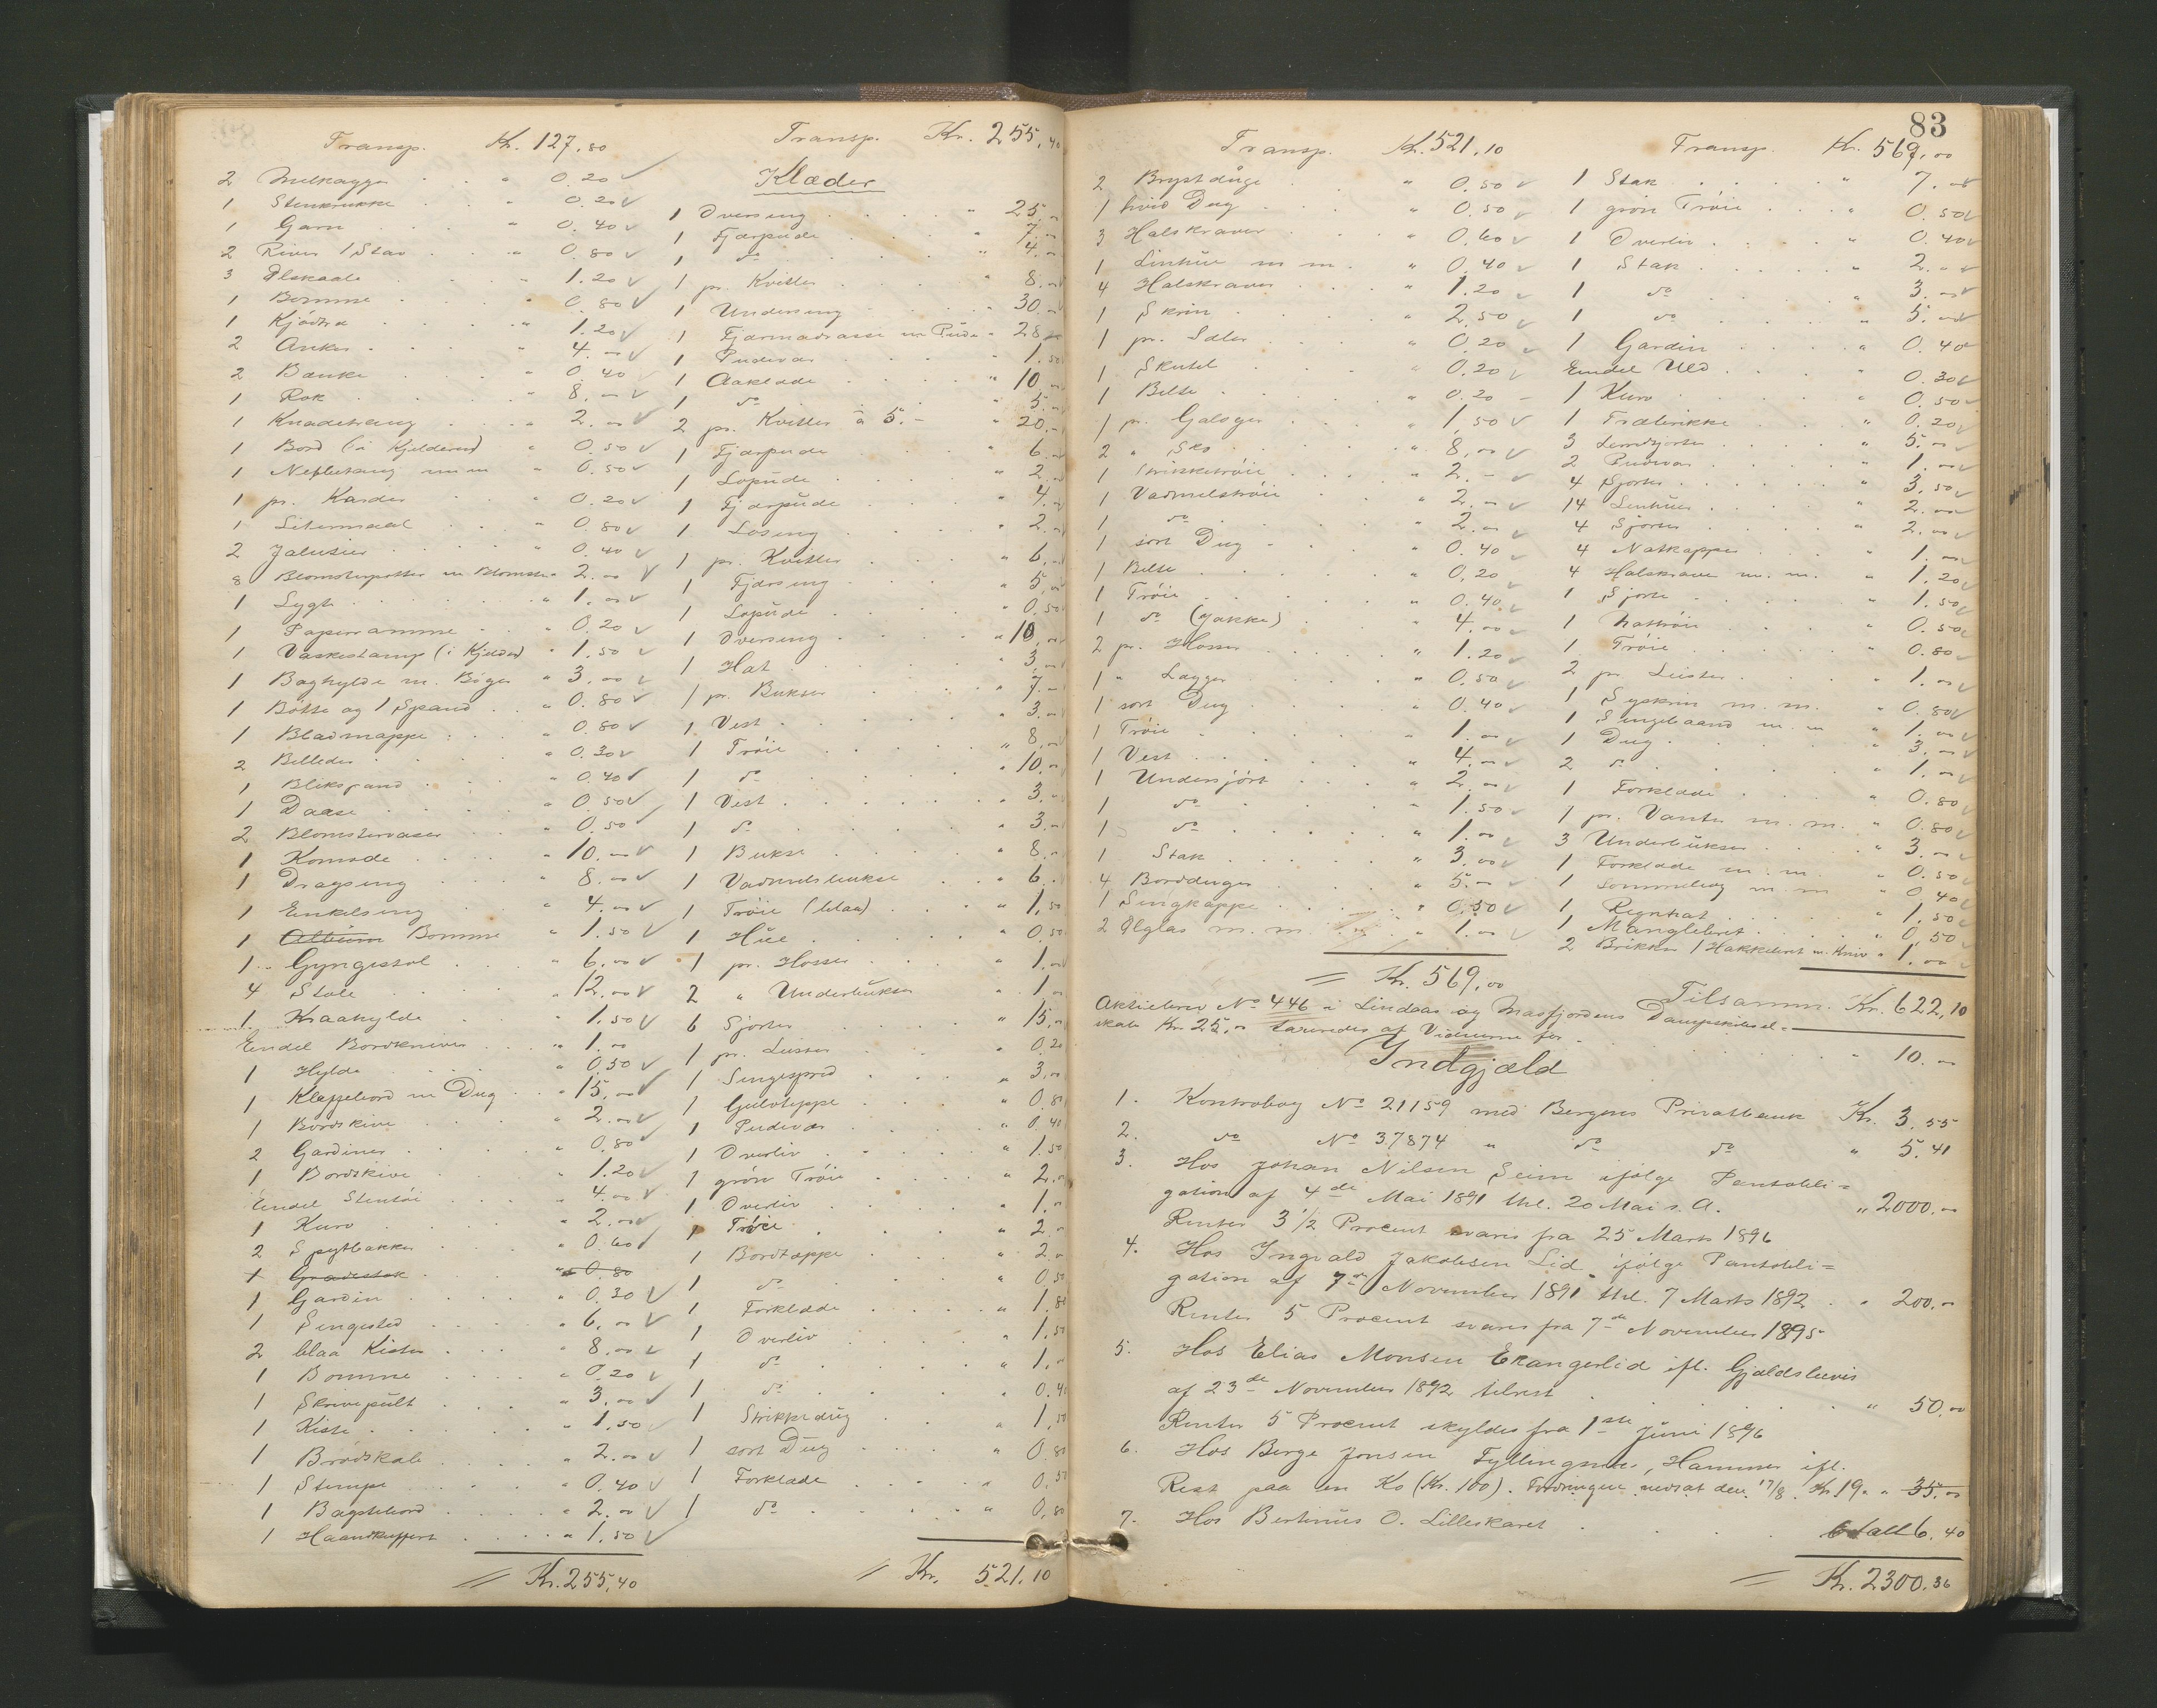 Transp. Kr. 127.80
2 Melkagger " 0.20
1 Stenkrukke " 0.20
1 Garn " 0.40
2 River 1 Stav " 0.80
3 Ølskaale " 1.20
1 Bomme " 0.80
1 Kjødtra " 1.20
2 Anker " 4.00
2 Bænke " 0.40
1 Rok " 8.00
1 Knadetraug " 2.00
1 Bord (i Kjelderen) " 0.50
1 Neflutang m m " 0.50
1 pr. Karder " 0.20
1 Litermaal " 0.80
2 Jalusier " 0.40
8 Blomsterpotter m Blomster " 2.00
1 Lygt " 1.00
1 Papirramme " 0.20
1 Vaskestamp (i Kjelder) " 1.50
1 Boghylde m. Bøger " 3.00
1 Bøtte og 1 Spand " 0.80
1 Bladmappe " 0.80
2 Billeder " 0.30
1 Blikspand " 0.40
1 Daase " 0.50
2 Blomstervaser " 0.50
1 Komode " 10.00
1 Dragseng " 8.00
1 Enkelseng " 4.00
1 Album Bomme " 1.50
1 Gyngestol " 6.00
4 Stole " 12.00
1 Kraahylde " 1.50
Endel Bordkniver " 1.00
1 Hylde " 0.50
1 Klappebord m Dug " 15.00
1 Bordskive " 2.00
2 Gardiner " 0.80
1 Bordskive " 1.20
Endel Stentøi " 4.00
1 Kurv " 2.00
2 Spytbakker " 0.60
1 Grødstok " 0.80
1 Gardin " 0.30
1 Sengested " 6.00
2 blaa Kister " 8.00
1 Bomme " 0.20
1 Skrivepult " 3.00
1 Kiste " 1.50
1 Brødskab " 2.00
1 Stampe " 0.40
1 Bagstebord " 2.00
1 Haandkuffert " 1.50
= Kr. 255.40
Transp. Kr. 255.40
Klæder
1 Overseng " 25.00
1 Fjærpude " 7.00
1 do " 4.00
1 pr. Kvitler " 8.00
1 Underseng " 30.00
1 Fjærmadrasse m Pude " 28
1 Pudevar " 1.50
1 Aaklæde " 10.00
1 do " 5.00
2 pr. Kvitler à 5.- " 20.-
1 Fjærpude " 6.00
1 Lopude " 2.00
1 Fjærpude " 4.00
1 Loseng " 2.00
1 pr. Kvitler " 6.00
1 Fjærseng " 5.00
1 Lopude " 0.50
1 Overseng " 10.00
1 Hat " 3.00
1 pr. Bukser " 7.-
1 Vest " 3.00
1 Trøie " 8.00
1 do " 10.00
1 Vest " 3.00
1 do " 3.00
1 Bukse " 8.00
1 Vadmelsbukse " 6.
1 Trøie (blaa) " 1.50
1 Hue " 0.50
1 pr. Hosser " 1.00
2 " Underbukser " 1.00
6 Sjorter " 15.00
1 pr. Lester " 0.20
1 Sengespred " 3.00
1 Gulvteppe " 0.80
1 Pudevar " 0.40
1 Overliv " 1.50
1 grøn Trøie " 2.00
1 Overliv " 1.00
1 Trøie " 2.00
1 Bordtæppe " 2.00
1 do " 0.50
1 Forklæde " 1.80
1 Overliv " 1.50
1 do " 1.00
1 do " 0.40
1 Strikkedug " 1.50
1 sort Dug " 0.80
1 Forklæde " 0.50
1 do " 0.80
= Kr. 521.10
83
Transp. Kr. 521.10
2 Brystduge " 0.50
1 hvid Dug " 0.50
3 Halskraver " 0.60
1 Linhue m m. " 0.40
4 Halskraver " 1.20
1 Skrin " 2.50
1 pr. Seler " 0.20
1 Skutel " 0.20
1 Belte " 0.20
1 pr. Galoger " 1.50
2 " Sko " 8.00
1 Strikketrøie " 2.-
1 Vadmelstrøie " 2.00
1 do " 2.00
1 sort Dug " 0.40
1 Belte " 0.20
1 Trøie " 0.40
1 do (Jakke) " 4.00
2 pr. Hosser " 1.20
1 " Lagger " 0.50
1 sort Dug " 0.40
1 Trøie " 1.00
1 Vest " 4.00
1 Undersjort " 2.00
1 do " 1.50
1 do " 1.00
1 Stak " 3.00
4 Bordduger " 5.00
1 Sengkappe " 0.50
2 Ølglas m. m. " 1.00
= Kr. 569.00
Transp. Kr. 569.00
1 Stak " 7.00
1 grøn Trøie " 0.50
1 Overliv " 0.40
1 Stak " 2.00
1 do " 3.00
1 do " 5.00
1 Gardin " 0.40
Endel Uld " 0.30
1 Kurv " 0.50
1 Træbrikke " 0.20
3 Lerredsjorter " 5.00
2 Pudevar " 1.00
4 Sjorter " 3.50
14 Linhuer " 2.00
4 Sjorter " 2.00
4 Natkapper " 1.00
4 Halskraver m. m. " 1.20
1 Sjorte " 1.50
1 Nattrøie " 0.50
1 Trøie " 0.80
2 pr. Leister " 1.00
1 Syskrin m. m. " 0.80
1 Sengebaand m. m " 1.00
1 Dug " 3.00
2 do " 1.00
1 Forklæde " 0.80
1 pr. Vanter m. m. " 0.80
3 Underbukser " 3.00
1 Forklæde m. m. " 0.50
1 Sommertøy m. m " 0.40
1 Regnhat " 1.50
1 Manglebret " 0.50
2 Brikker 1 Hakkebret m. Kniv " 1.00
Tilsamm. Kr. 622.10
Aktiebrev No 446 i Lindaas og Masfjordens Dampskibssel=
skab Kr. 25.00 taxeredes af Vidnerne for " 10.00
Indgjæld
1. Kontrabog No 21159 med Bergens Privatbank Kr. 3.55
2. do No 37874 " do do " 5.41
3. Hos Johan Nilsen Seim ifølge Pantobli=
gation af 4de Mai 1891 thl. 20 Mai s. A. " 2000.00
Renter 3 1/2 Procent svares fra 25 Marts 1896
4. Hos Ingvald Jakobsen Lid ifølge Pantobli=
gation af 7de November 1891 thl. 7 Marts 1892 " 200.00
Renter 5 Procent svares fra 7de November 1895
5. Hos Elias Monsen Ekangerlid ifl. Gjældsbevis
af 23de November 1892 tilrest " 50.00
Renter 5 Procent skyldes fra 1ste Juni 1896
6. Hos Berge Jonsen Fyllingsnes, Hammer ifl.
Rest paa en Ko (Kr. 100). Fordringen nedsat den 17/8 Kr 19. " 35.00
7. Hos Bertinus O. Lilleskaret 6.40
= Kr. 2300.36